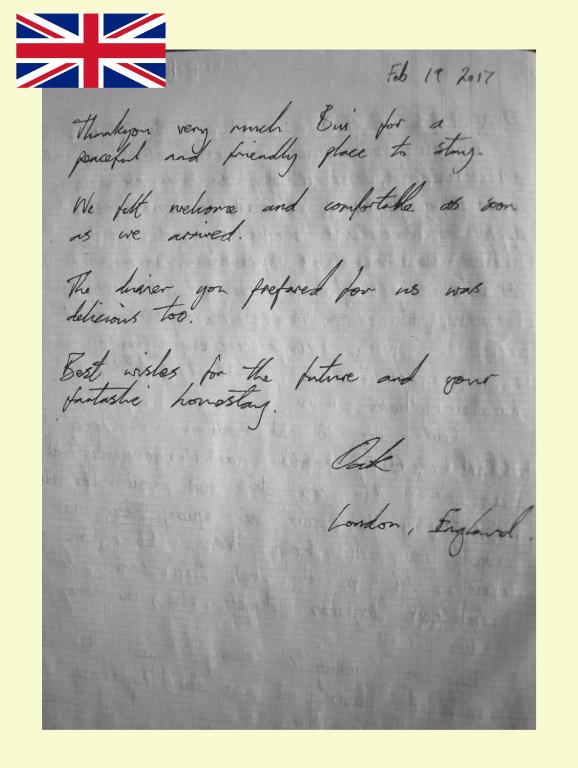 Feb 19 2017
Thankyou very much Bui for a
peaceful and friendly place to stay.
We felt welcome and comfortable as soon
as we arrived.
The dinner you prepared for us was
delicious too.
Best wishes for the future and your
fantastic homestay.
London, England.